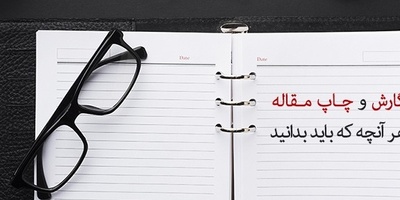 Date
Date
گارش و چاپ مقاله
هر آنچه که باید بدانید